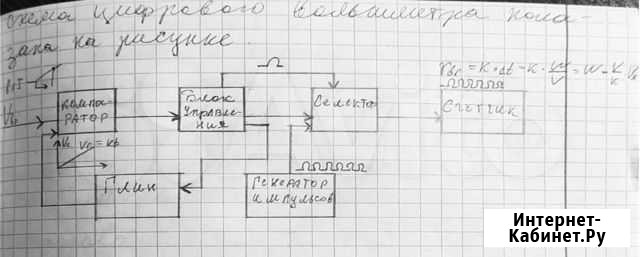 схема цифрового вольтметра пока-
зана на рисунке.
Компа-
ратор
Блок
управле-
ния
Селектор
Счётчик
Vc = kt
Глин
Генератор
импульсов
Интернет-
Кабинет.Ру